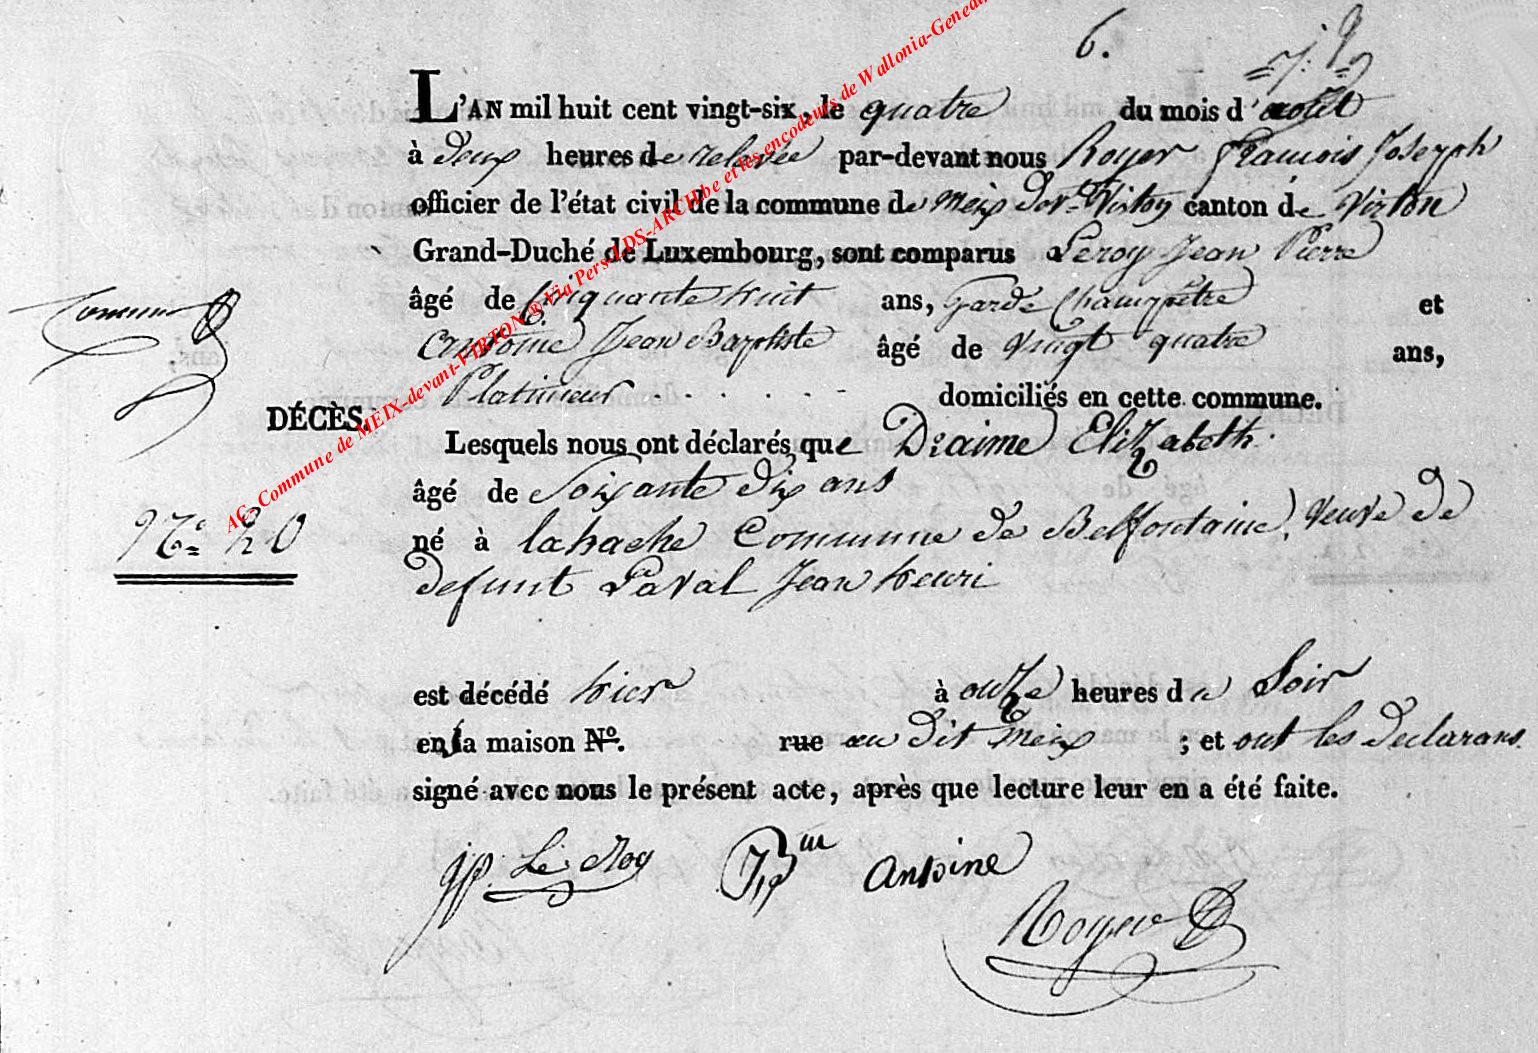 6.
L'AN mil huit cent vingt-six, le quatre du mois d'aout
à deux heures de relevée par-devant nous Royer François Joseph
officier de l'état civil de la commune de Meix devt Virton canton de Virton
Grand-Duché de Luxembourg, sont comparus Leroy Jean Pierre
âgé de Cinquante huit ans, Garde Champêtre et
Antoine Jean Baptiste âgé de vingt quatre ans,
Platineur . . . . . . domiciliés en cette commune.
DÉCÈS.
Lesquels nous ont déclarés que Draime Elizabeth.
âgé de Soixante dix ans
né à lahache Commune de Belfontaine, veuve de
defunt Laval Jean henri
N.° 20
est décédé hier à onze heures du Soir
en sa maison N°. rue au dit Meix ; et ont les Declarans
signé avec nous le présent acte, après que lecture leur en a été faite.
JP. Le Roy Antoine
Royer
AC. Commune de MEIX-devant-VIRTON ® Via Pers-LDS-ARCH.be et les encodeurs de Wallonia-Genea